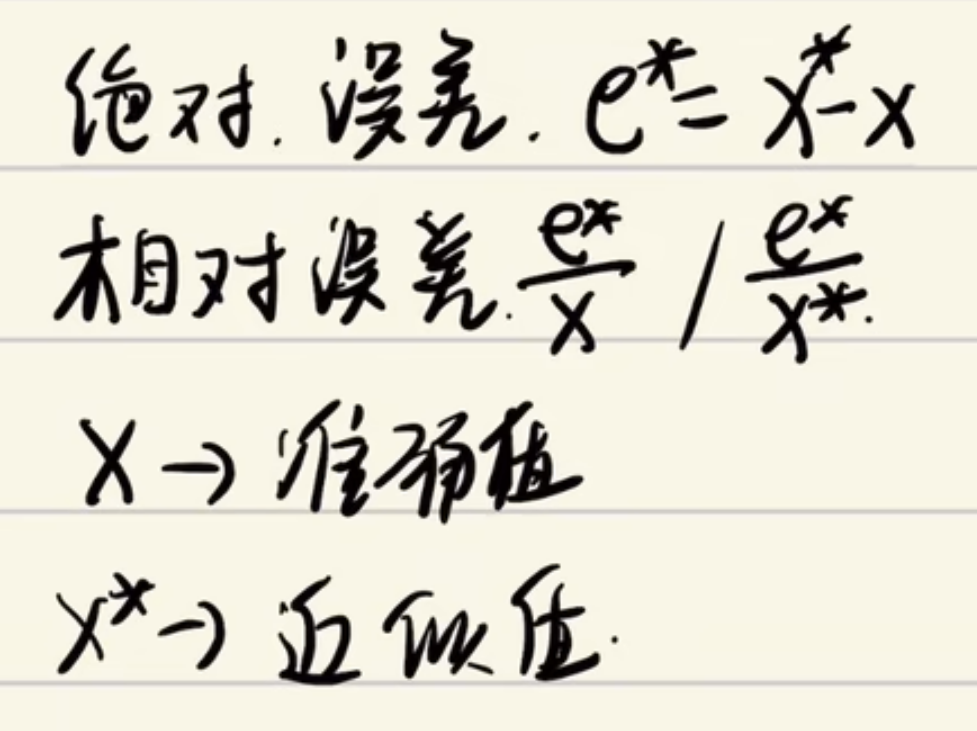 绝对.误差. e*= x*-x
相对误差. e*/x / e*/x*.
x → 准确值
x* → 近似值.